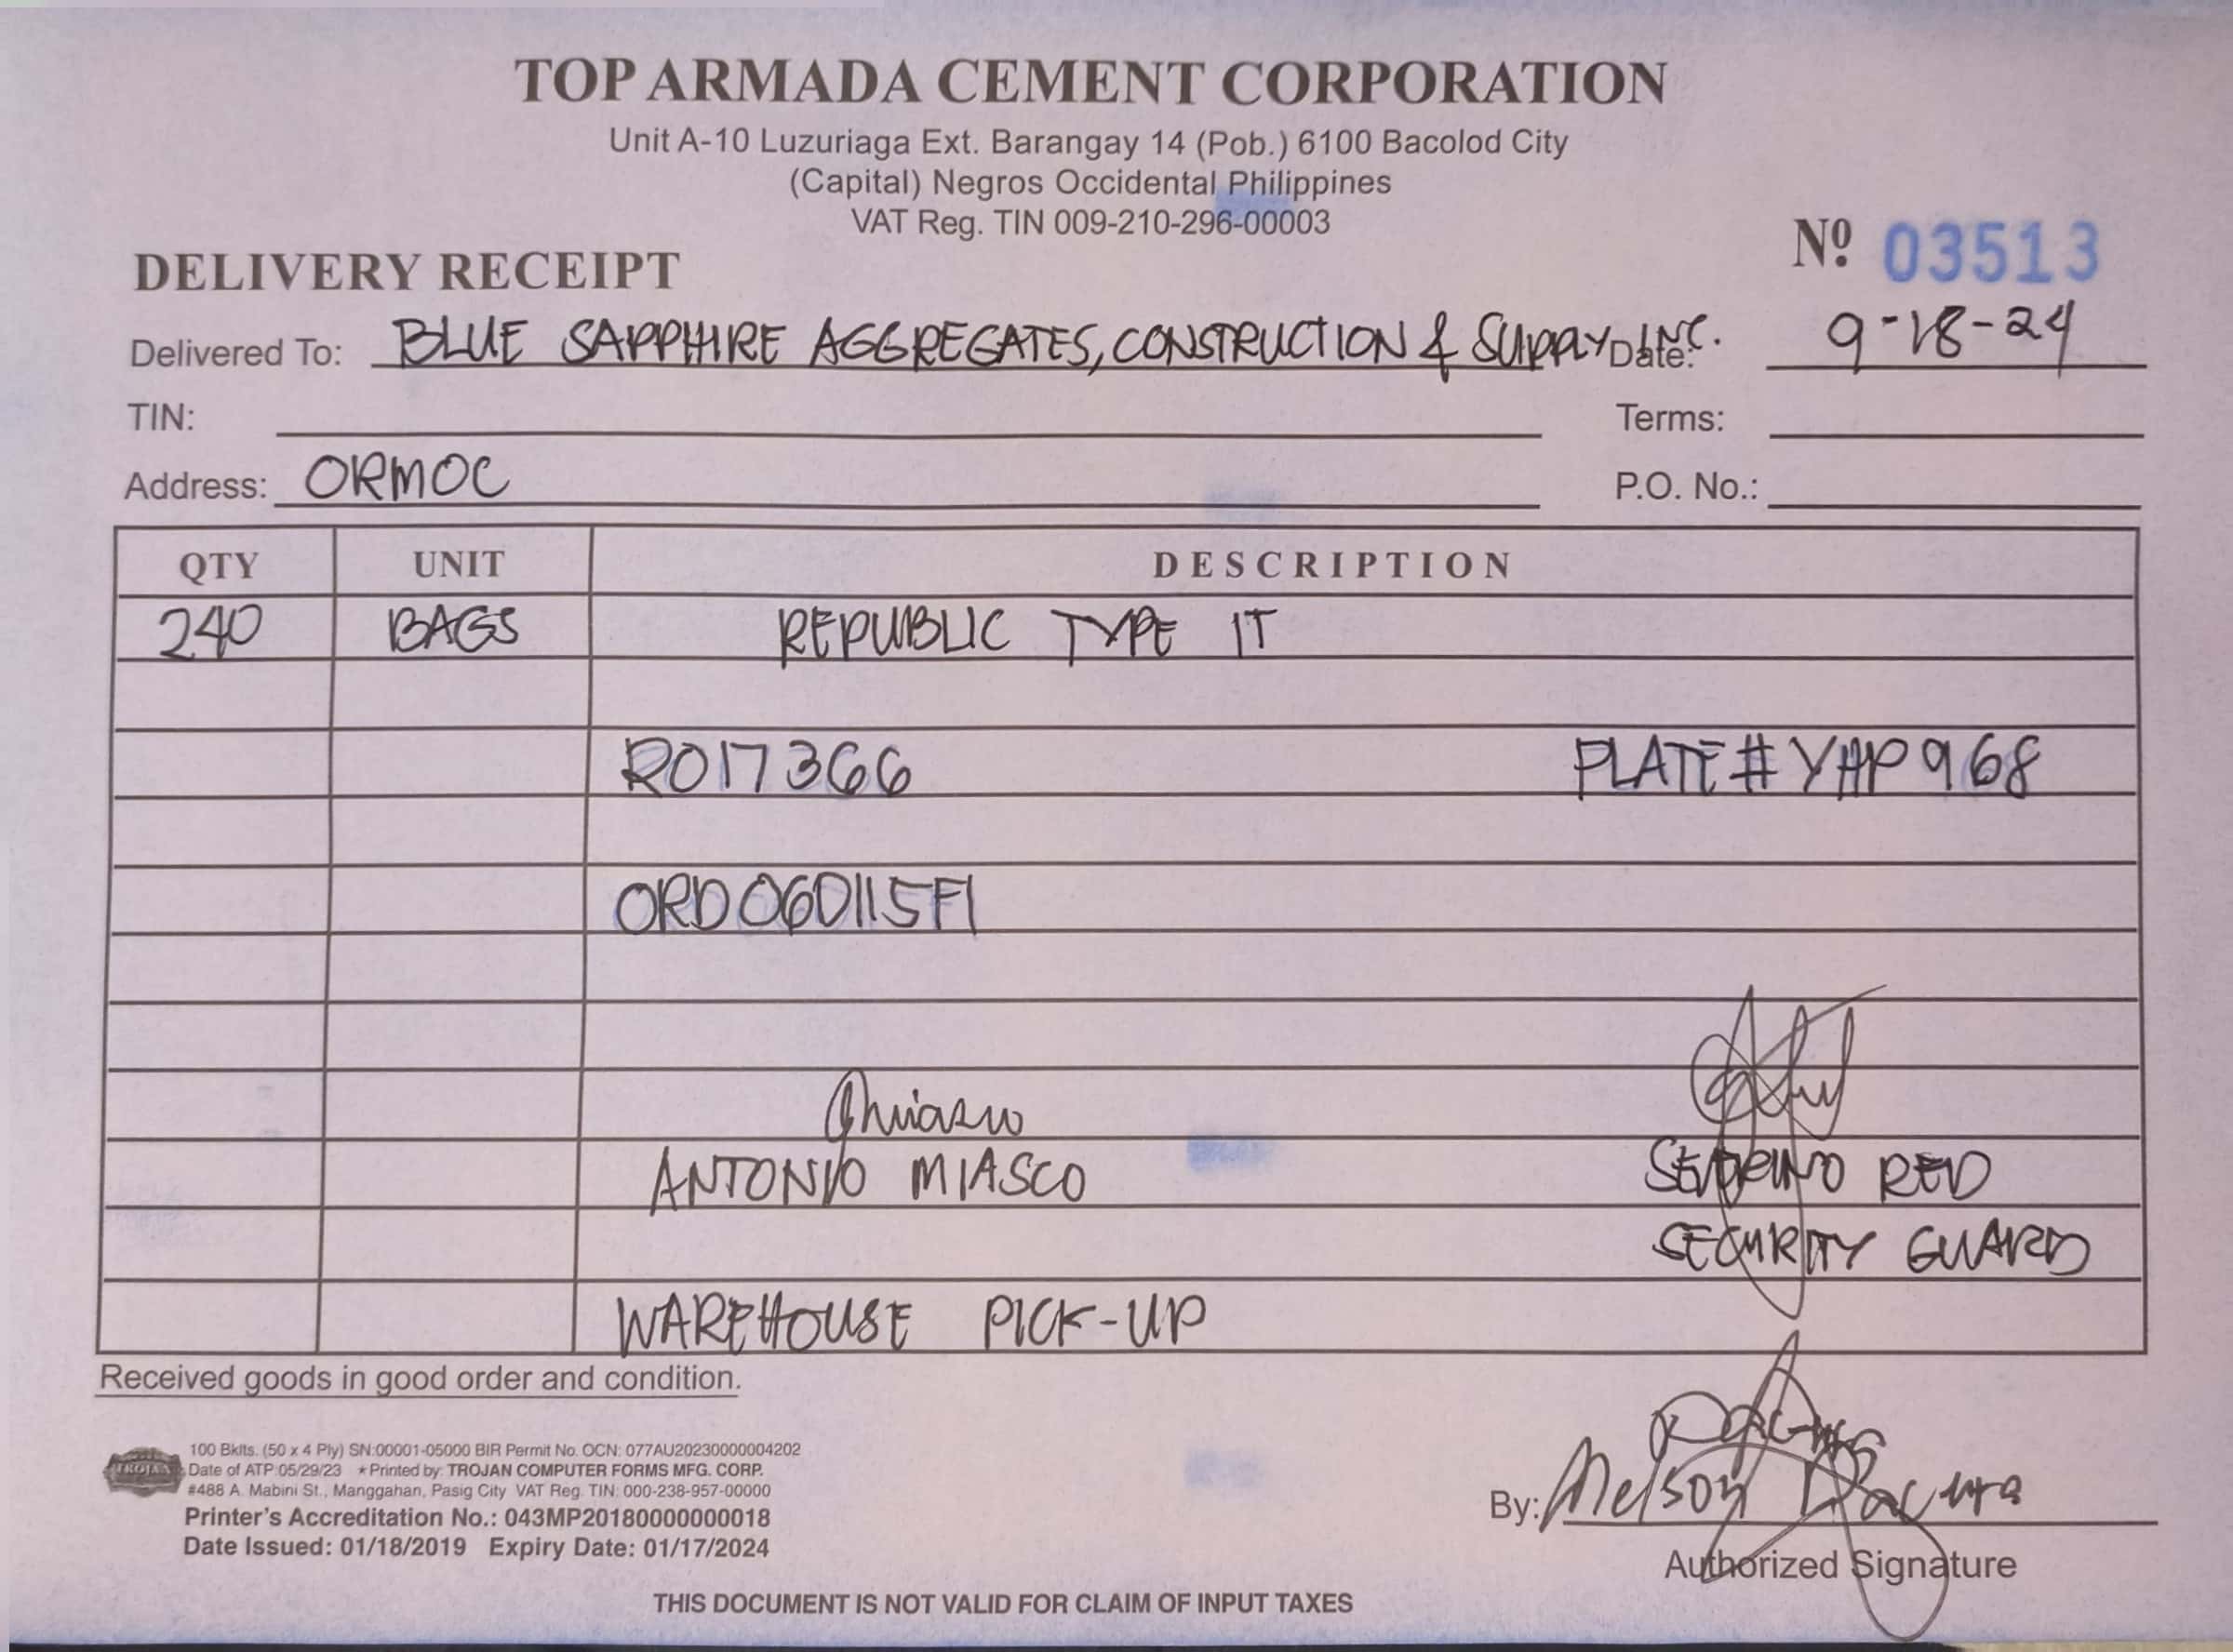 TOP ARMADA CEMENT CORPORATION
Unit A-10 Luzuriaga Ext. Barangay 14 (Pob.) 6100 Bacolod City
(Capital) Negros Occidental Philippines
VAT Reg. TIN 009-210-296-00003
Nº 03513
DELIVERY RECEIPT
Delivered To: BLUE SAPPHIRE AGGREGATES, CONSTRUCTION & SUPPLY INC. Date: 9-18-24
TIN: Terms:
Address: ORMOC P.O. No.:
QTY UNIT DESCRIPTION
240 BAGS REPUBLIC TYPE 1T
RO17366 PLATE # YHP 968
ORD060115F1
ANTONIO MIASCO SEVERINO RED
SECURITY GUARD
WAREHOUSE PICK-UP
Received goods in good order and condition.
TROJAN
100 Bklts. (50 x 4 Ply) SN:00001-05000 BIR Permit No. OCN: 077AU20230000004202
Date of ATP:05/29/23 ★Printed by: TROJAN COMPUTER FORMS MFG. CORP.
#488 A. Mabini St., Manggahan, Pasig City VAT Reg. TIN: 000-238-957-00000
Printer's Accreditation No.: 043MP20180000000018
Date Issued: 01/18/2019 Expiry Date: 01/17/2024
By: Nelson
Authorized Signature
THIS DOCUMENT IS NOT VALID FOR CLAIM OF INPUT TAXES